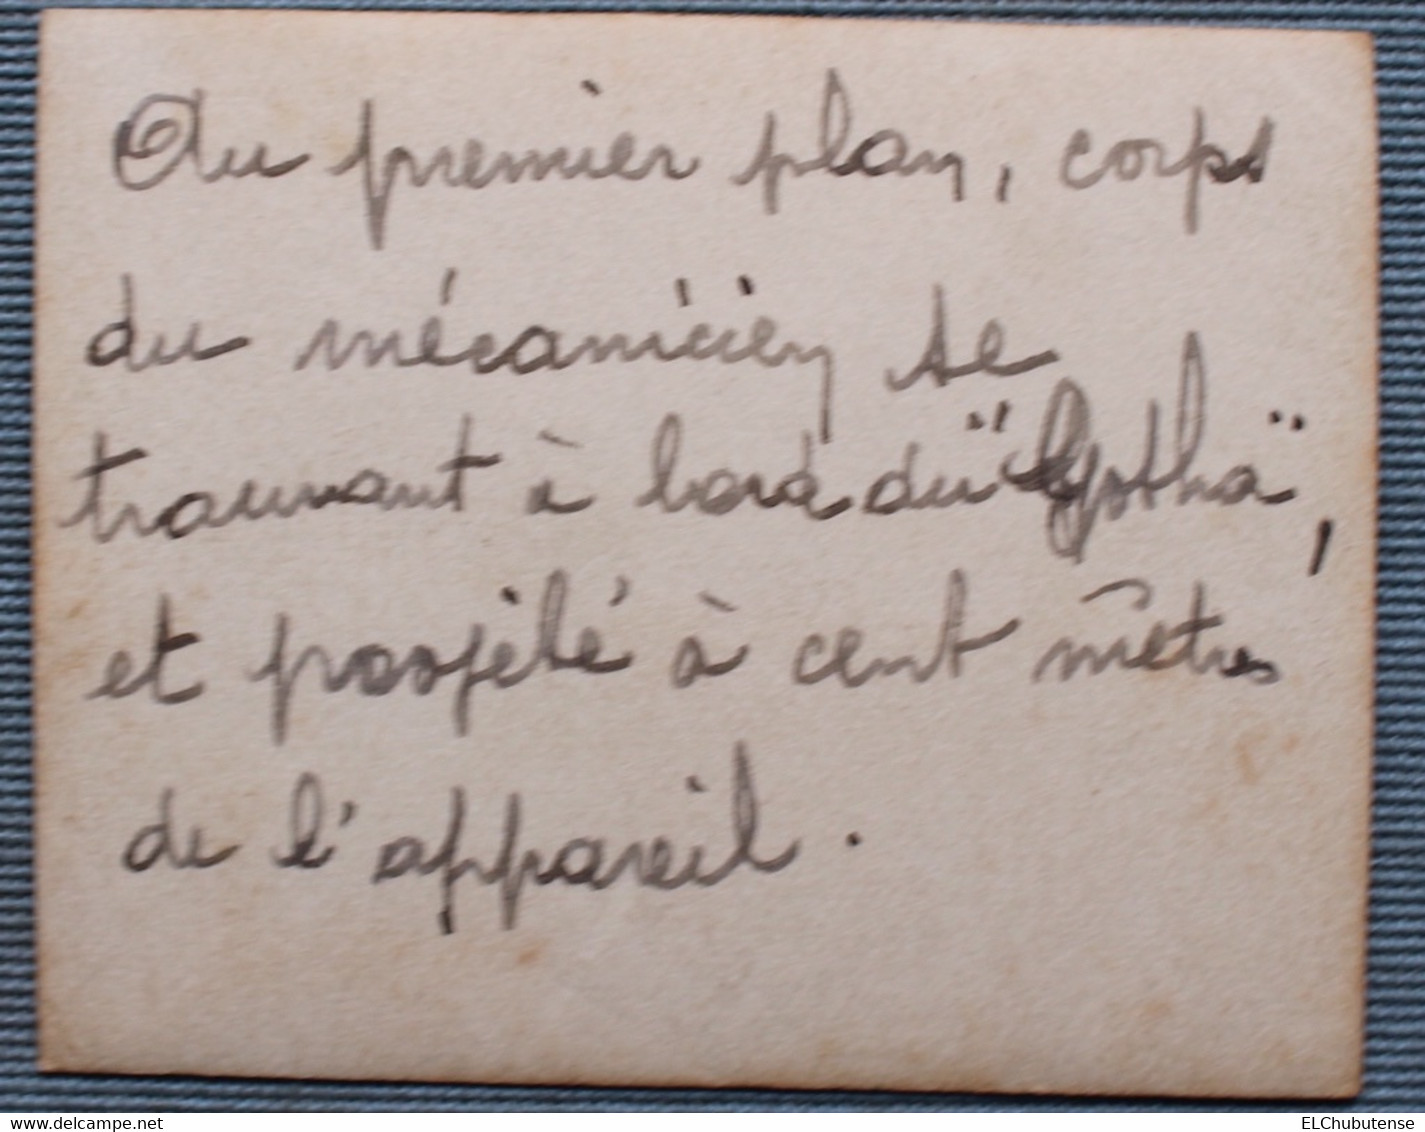 Au premier plan, corps
du mécanicien se
trouvant à bord du "Gotha",
et projeté à cent mètres
de l'appareil.
delcampe.net
ELChubutense